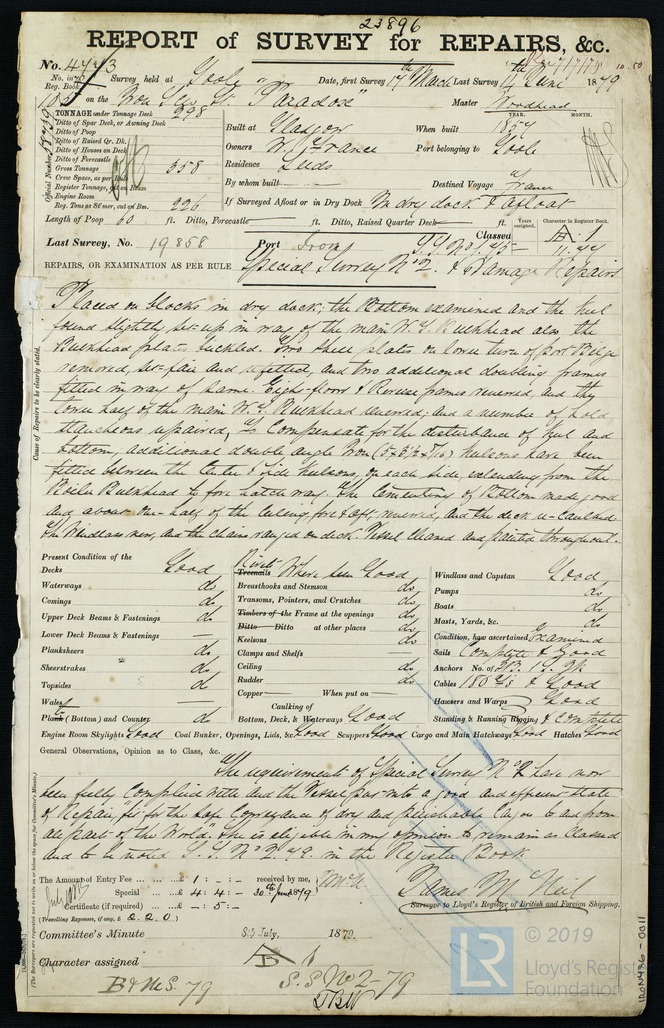 23896
REPORT of SURVEY for REPAIRS, &c.
No. 4443 Survey held at Goole Date, first Survey 17th March Last Survey 17th June 1879
No. in Reg. Book
105 on the Iron Scr Sr "Paradox" Master Woodhead
TONNAGE under Tonnage Deck 298
Ditto of Spar Deck, or Awning Deck
Ditto of Poop
Ditto of Raised Qr. Dk.
Ditto of Houses on Deck
Ditto of Forecastle
Gross Tonnage 358
Crew Space, as per Rule
Register Tonnage, cut on Beam
Engine Room
Reg. Tons as St'mer, cut on Bm. 226
Official Number
YEAR. MONTH.
Built at Glasgow When built 1857
Owners W. France Port belonging to Goole
Residence Leeds
By whom built Destined Voyage France
If Surveyed Afloat or in Dry Dock In dry dock & afloat
Length of Poop 60 ft. Ditto, Forecastle ft. Ditto, Raised Quarter Deck ft.
Years assigned. Character in Register Book.
Last Survey, No. 19858 Port Classed A 1
REPAIRS, OR EXAMINATION AS PER RULE Special Survey No 2. & Damage Repairs
Cause of Repairs to be clearly stated.
Placed on blocks in dry dock; the Bottom examined and the keel
found slightly set-up in way of the main W.T. Bulkhead also the
Bulkhead plates buckled. Two shell plates on lower turn of port Bilge
removed, set-fair and refitted, and two additional doubling frames
fitted in way of same. Eight floors & Reverse frames renewed, and the
lower half of the main W.T. Bulkhead renewed; and a number of hold
stancheons repaired, To Compensate for the disturbance of keel and
bottom, additional double angle Iron Keelsons have been
fitted between the Center & Side Keelsons, on each side, extending from the
Boiler Bulkhead to fore hatch way. The Cementing of Bottom made good
and about one-half of the Ceiling, fore & aft, renewed, and the deck re-caulked
the Windlass new, and the chains ranged on deck. Vessel cleaned and painted throughout.
Present Condition of the
Decks Good
Waterways do
Comings do
Upper Deck Beams & Fastenings do
Lower Deck Beams & Fastenings —
Planksheers do
Sheerstrakes do
Topsides do
Wales —
Plank (Bottom) and Counter do
Rivets
Treenails Where seen Good
Breasthooks and Stemson do
Transoms, Pointers, and Crutches do
Timbers of the Frame at the openings do
Ditto Ditto at other places do
Keelsons do
Clamps and Shelfs —
Ceiling do
Rudder do
Copper When put on
Caulking of
Bottom, Deck, & Waterways Good
Windlass and Capstan Good
Pumps do
Boats do
Masts, Yards, &c. do
Condition, how ascertained Examined
Sails Complete & Good
Anchors No. of 3B. 1S. 2K
Cables 180 f/s & Good
Hawsers and Warps Good
Standing & Running Rigging & complete
Engine Room Skylights Good Coal Bunker, Openings, Lids, &c. Good Scuppers Good Cargo and Main Hatchways Good Hatches Good
General Observations, Opinion as to Class, &c.
The requirements of Special Survey No 2 have now
been fully Complied with and the Vessel put into a good and efficient state
of Repair, "fit for the safe Conveyance of dry and perishable Cargoes to and from
all parts of the World." She is eligible in my opinion to remain as Classed
and to be noted S.S. No 2. 79. in the Register Book.
The Amount of Entry Fee ... £ 1 : - : - received by me,
Special ... £ 4 : 4 : - 30th June 1879
Certificate (if required) ... - : 5 : -
(Travelling Expenses, if any, £ 2.2.0)
James McNeil
Surveyor to Lloyd's Register of British and Foreign Shipping.
Committee's Minute 8th July, 1879.
Character assigned A 1
B & MS. 79 S.S No 2-79
(The Surveyors are requested not to write on or below the space for Committee's Minute.)
IRON436-0011
LR © 2019
Lloyd's Register
Foundation